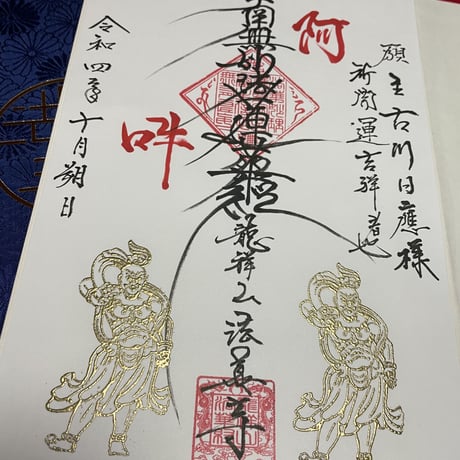 願主古川日應様
祈開運吉祥者也
阿
南無妙法蓮華経
龍祥山法華寺
吽
令和四年十月朔日